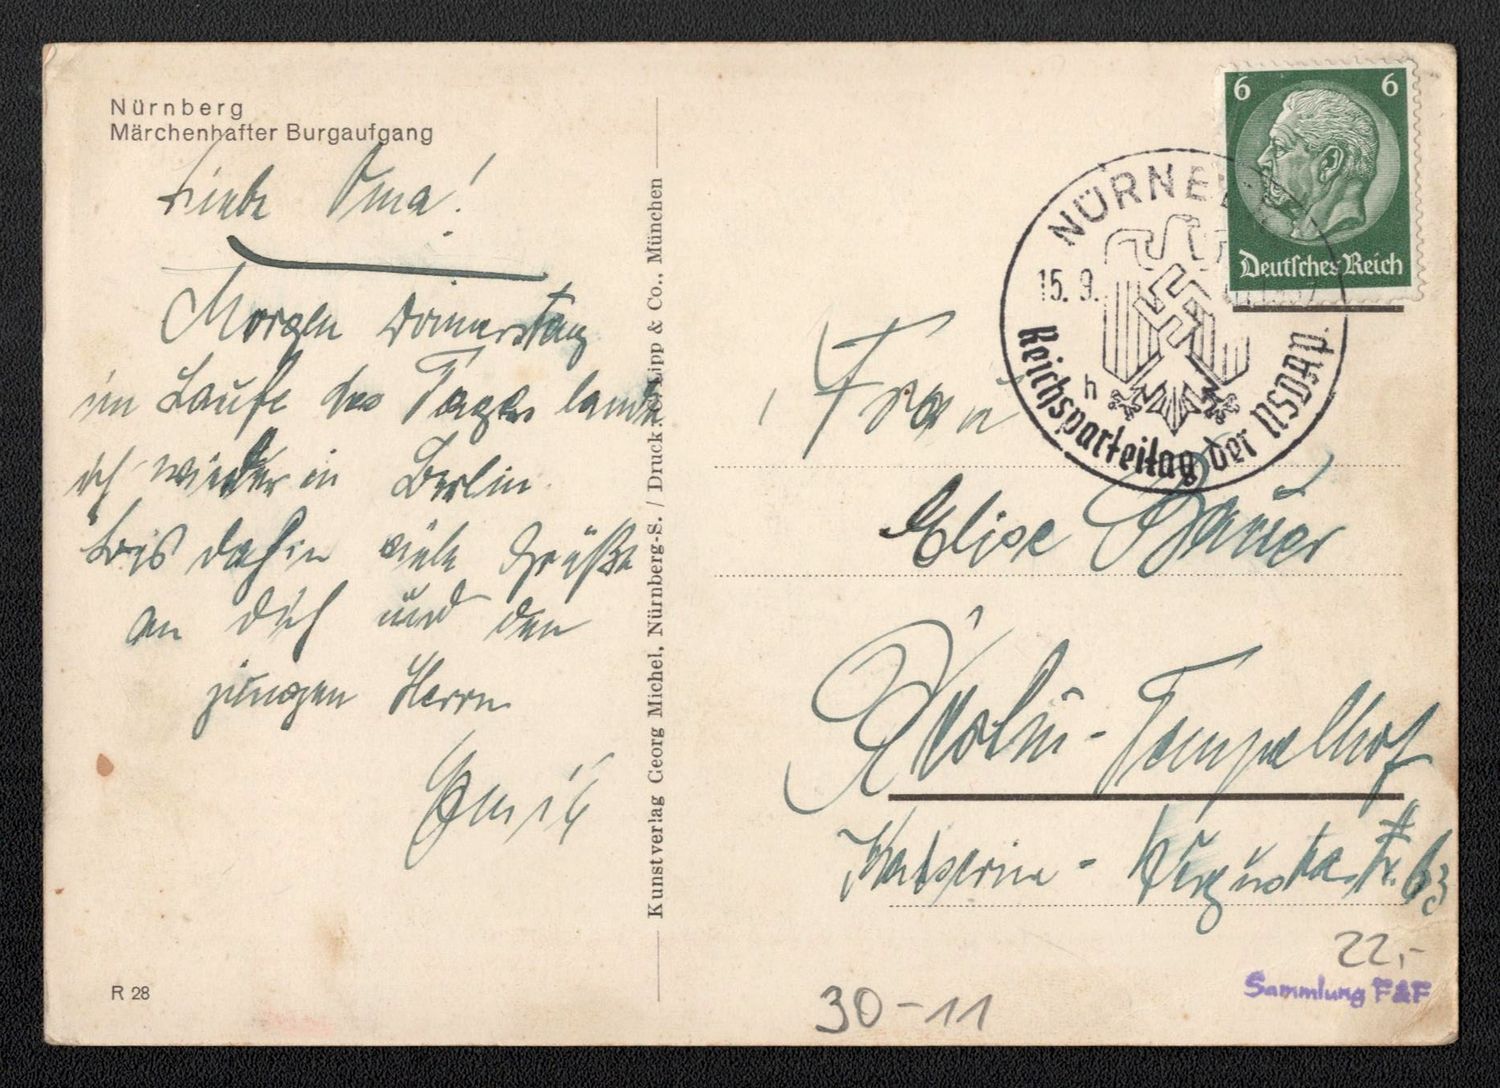 Nürnberg
Märchenhafter Burgaufgang
Liebe Oma!
Morgen Donnerstag
im Laufe des Tages lande
ich wieder in Berlin.
Bis dahin viele Grüße
an Dich und den
jungen Herrn
R 28
Kunstverlag Georg Michel, Nürnberg-S. / Druck: Lipp & Co., München
6 6
Deutsches Reich
NÜRNBE
15. 9. 37
h
Reichsparteitag der NSDAP.
Frau
Elise Bauer
Berlin-Tempelhof
Kaiserin-Augustastr. 63
22,-
Sammlung F&F
30-11